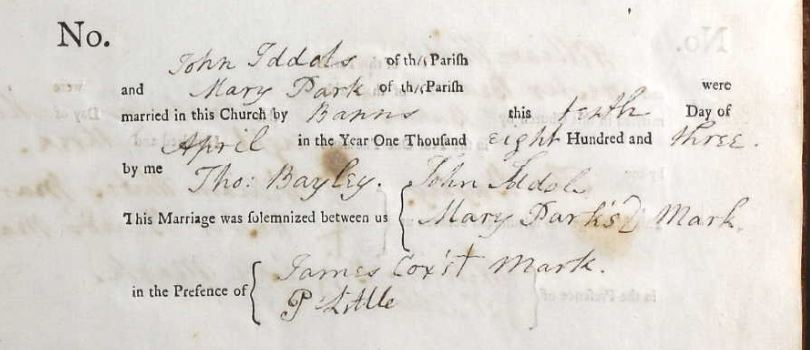 No.
John Iddols of this Parish
and Mary Park of this Parish were
married in this Church by Banns this tenth Day of
April in the Year One Thousand eight Hundred and three.
by me Tho: Bayley. John
This Marriage was solemnized between us Mary Park's Mark
in the Presence of James Cox's + Mark.
P Little